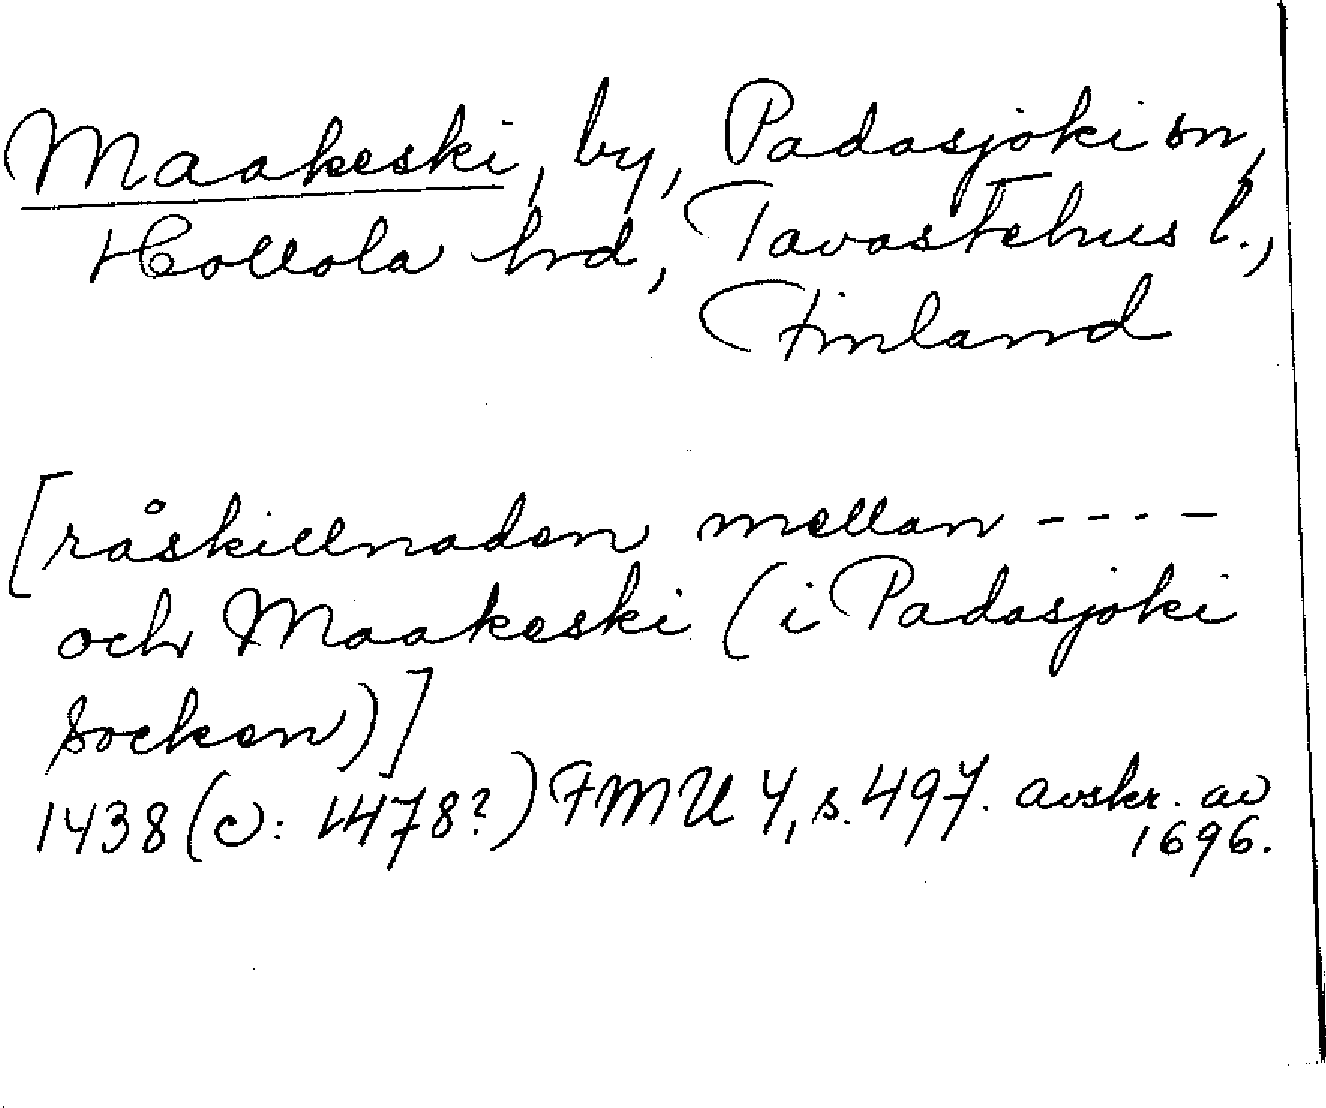 Maakeski, by, Padasjoki sn,
Hollola hrd, Tavastehus l.,
Finland
[råskillnaden mellan ----
och Maakeski (i Padasjoki
socken)]
1438 (ɔ: 1478?) FMU 4, s. 497. avskr. av
1696.